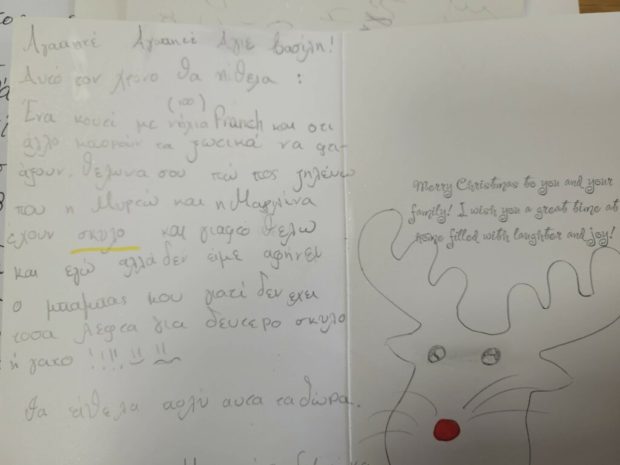 Αγαπητέ Αγαπητέ Αγιε Βασίλη!
Αυτό τον χρόνο θα ήθελα :
(100)
Ένα κουτί με Pranch και οτι
άλλο μπορουν τα ζωτικά να φα-
άγουν. θέλω να σου πώ πως ζηλέυω
που η Μυρτώ και η
έχουν σκυλο και γιαφτο θελω
και εγώ αλλά δεν είμε αφήνει
ο μπαμπας μου γιατί δεν εχει
τοσα λεφτα για δευτερο σκυλο
ή γατο !!!!
θα είθελα πολύ αυτα τα δώρα.
Merry Christmas to you and your
family! I wish you a great time at
home filled with laughter and joy!